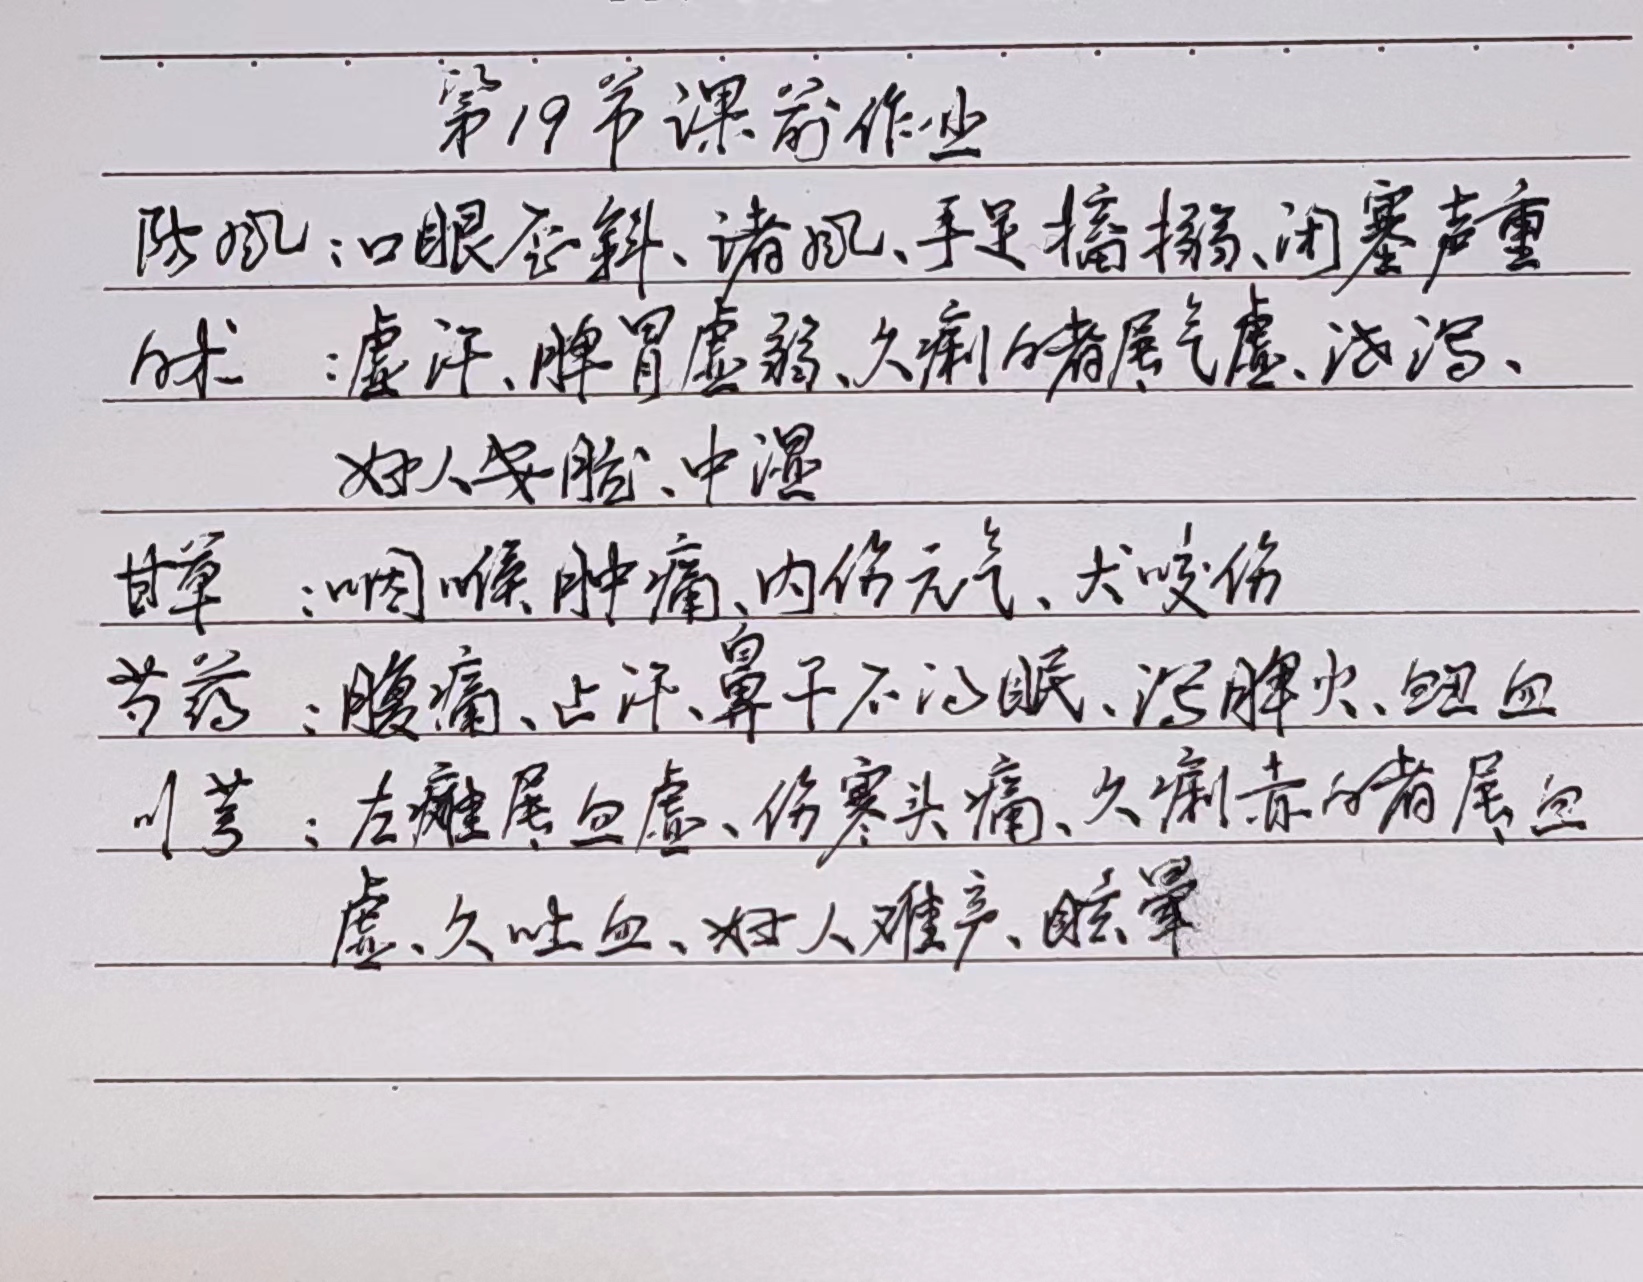 第19节课前作业
防風：口眼歪斜、诸風、手足搐搦、闭塞声重
白术：虚汗、脾胃虚弱、久痢白者属气虚、泄泻、
妇人安胎、中湿
甘草：咽喉肿痛、内伤元气、犬咬伤
芍药：腹痛、止汗、鼻干不得眠、泻脾火、衄血
川芎：左瘫属血虚、伤寒头痛、久痢赤白者属血
虚、久吐血、妇人难产、眩晕